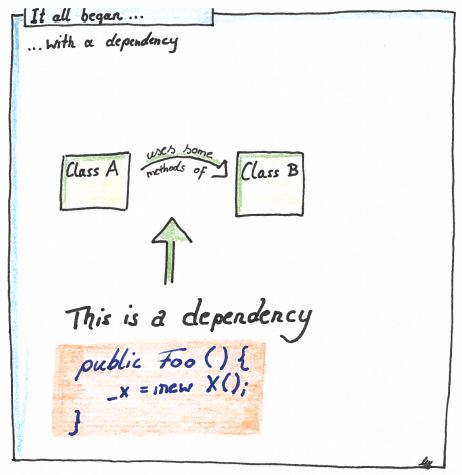 It all began ...
... with a dependency
uses some
Class A
methods of
Class B
This is a dependency
public Foo () {
_x = new X();
}